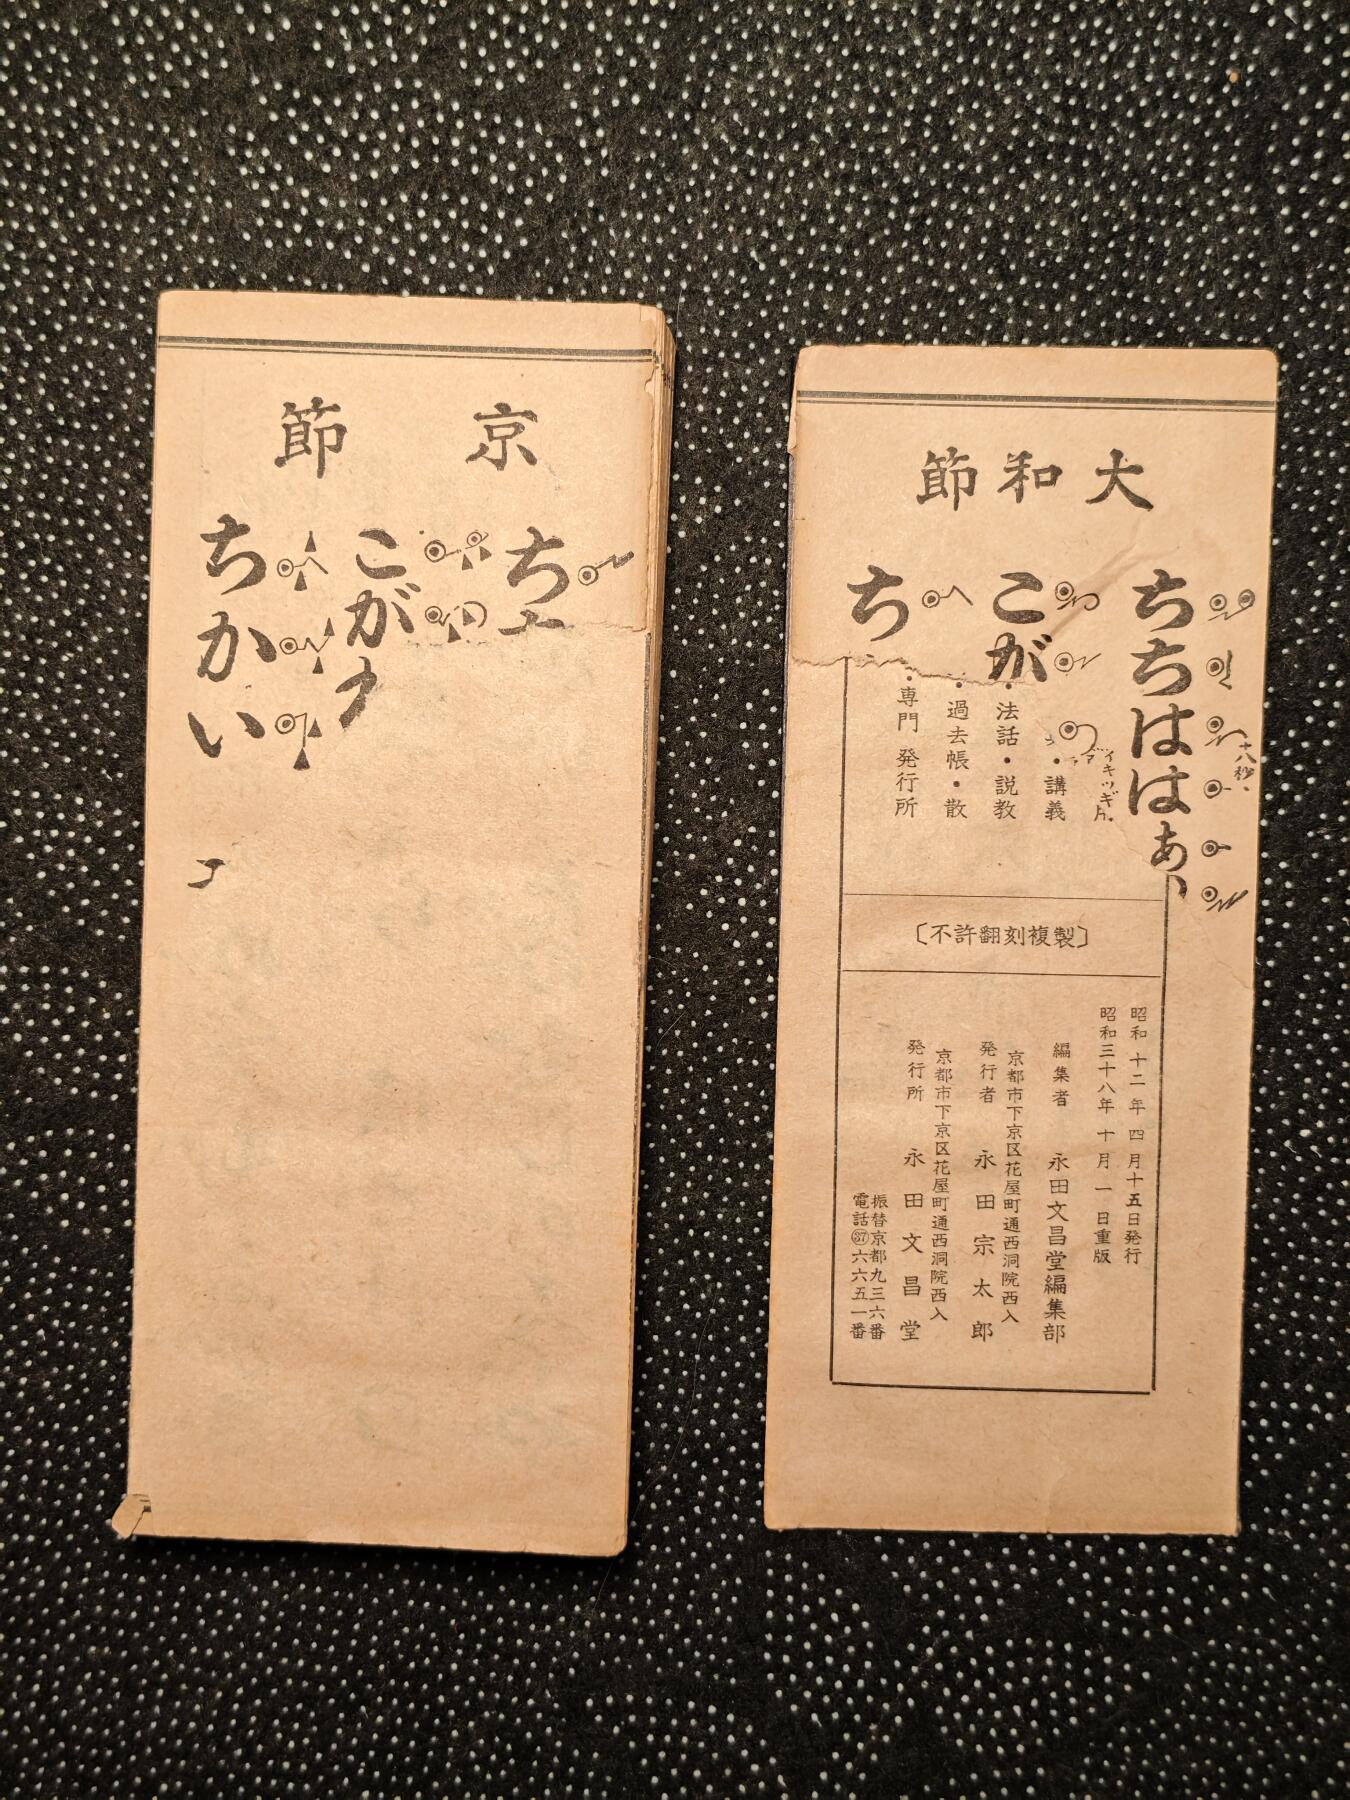 京節
ち
こが
ちかい
大和節
ちちははあ
十八秒、
こが
ち
イキツギ
・講義
・法話・説教
・過去帳・散
・専門 発行所
〔不許翻刻複製〕
昭和十二年四月十五日発行
昭和三十八年十月一日重版
編集者 永田文昌堂編集部
京都市下京区花屋町通西洞院西入
発行者 永田宗太郎
京都市下京区花屋町通西洞院西入
発行所 永田文昌堂
振替京都九三六番
電話㊲六六五一番